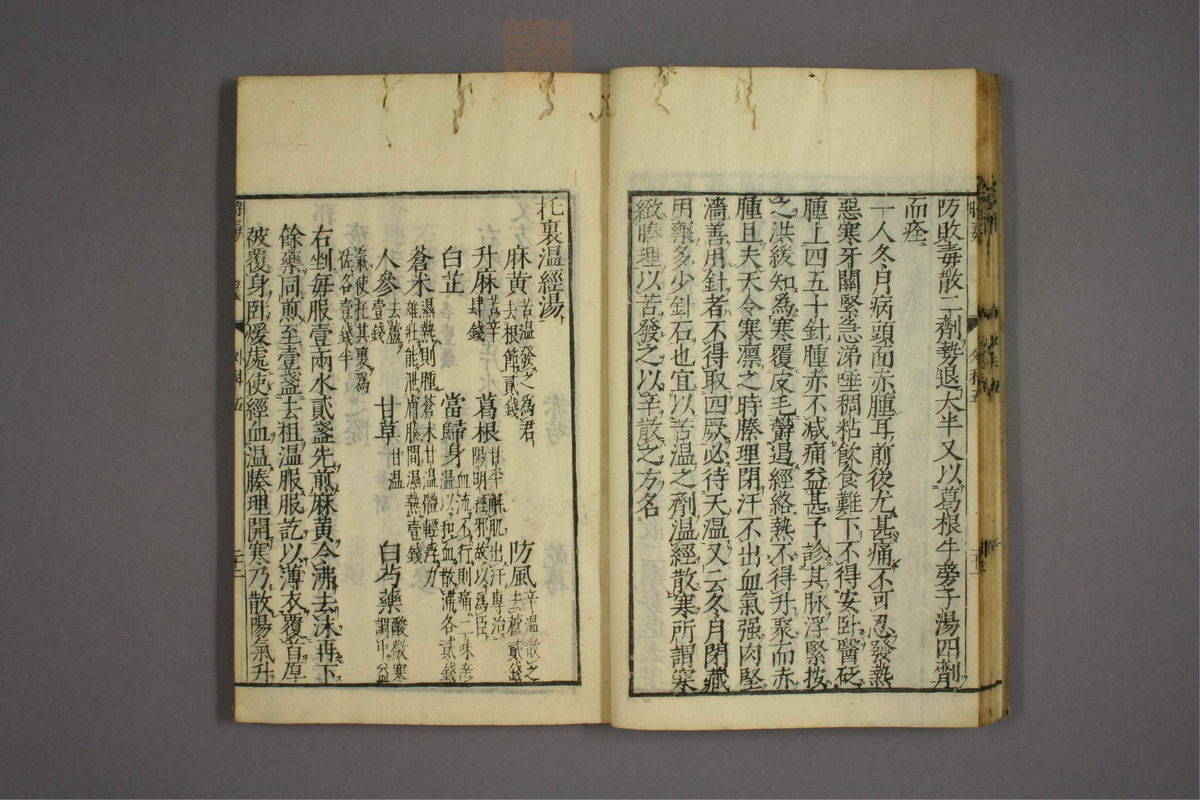 防敗毒散二劑勢退大半又以葛根牛蒡子湯四劑
而痊
一人冬月病頭面赤腫耳前後尤甚痛不可忍發熱
惡寒牙關緊急涕唾稠粘飲食難下不得安卧醫砭
腫上四五十針腫赤不減痛益甚予診其脉浮緊按
之洪緩知為寒覆皮毛欝遏經絡熱不得升聚而赤
腫且夫天令寒凛之時腠理閉汗不出血氣强肉堅
濇善用針者不得取四厥必待天温又云冬月閉藏
用藥多少針石也宜以苦温之劑温經散寒所謂寒
緻腠理以苦發之以辛散之方名
托裏温經湯
麻黄苦温發之為君去根節貳錢 防風辛温散之去蘆貳錢
升麻苦辛肆錢 葛根甘平解肌出汗專治陽明經邪故以為臣
白芷 當歸身血流不行則痛二味辛温以和血散滯各貳錢
蒼术濕熱則腫蒼术甘温體輕浮力雄壯能泄膚腠間濕熱壹錢
人參去蘆壹錢 甘草甘温 白芍藥酸微寒調中益
氣使托其裏為佐各壹錢半
右剉每服壹兩水貳盞先煎麻黄令沸去沫再下
餘藥同煎至壹盞去柤温服服訖以薄衣覆首厚
被覆身卧煖處使經血温腠理開寒乃散陽氣升
外科 五